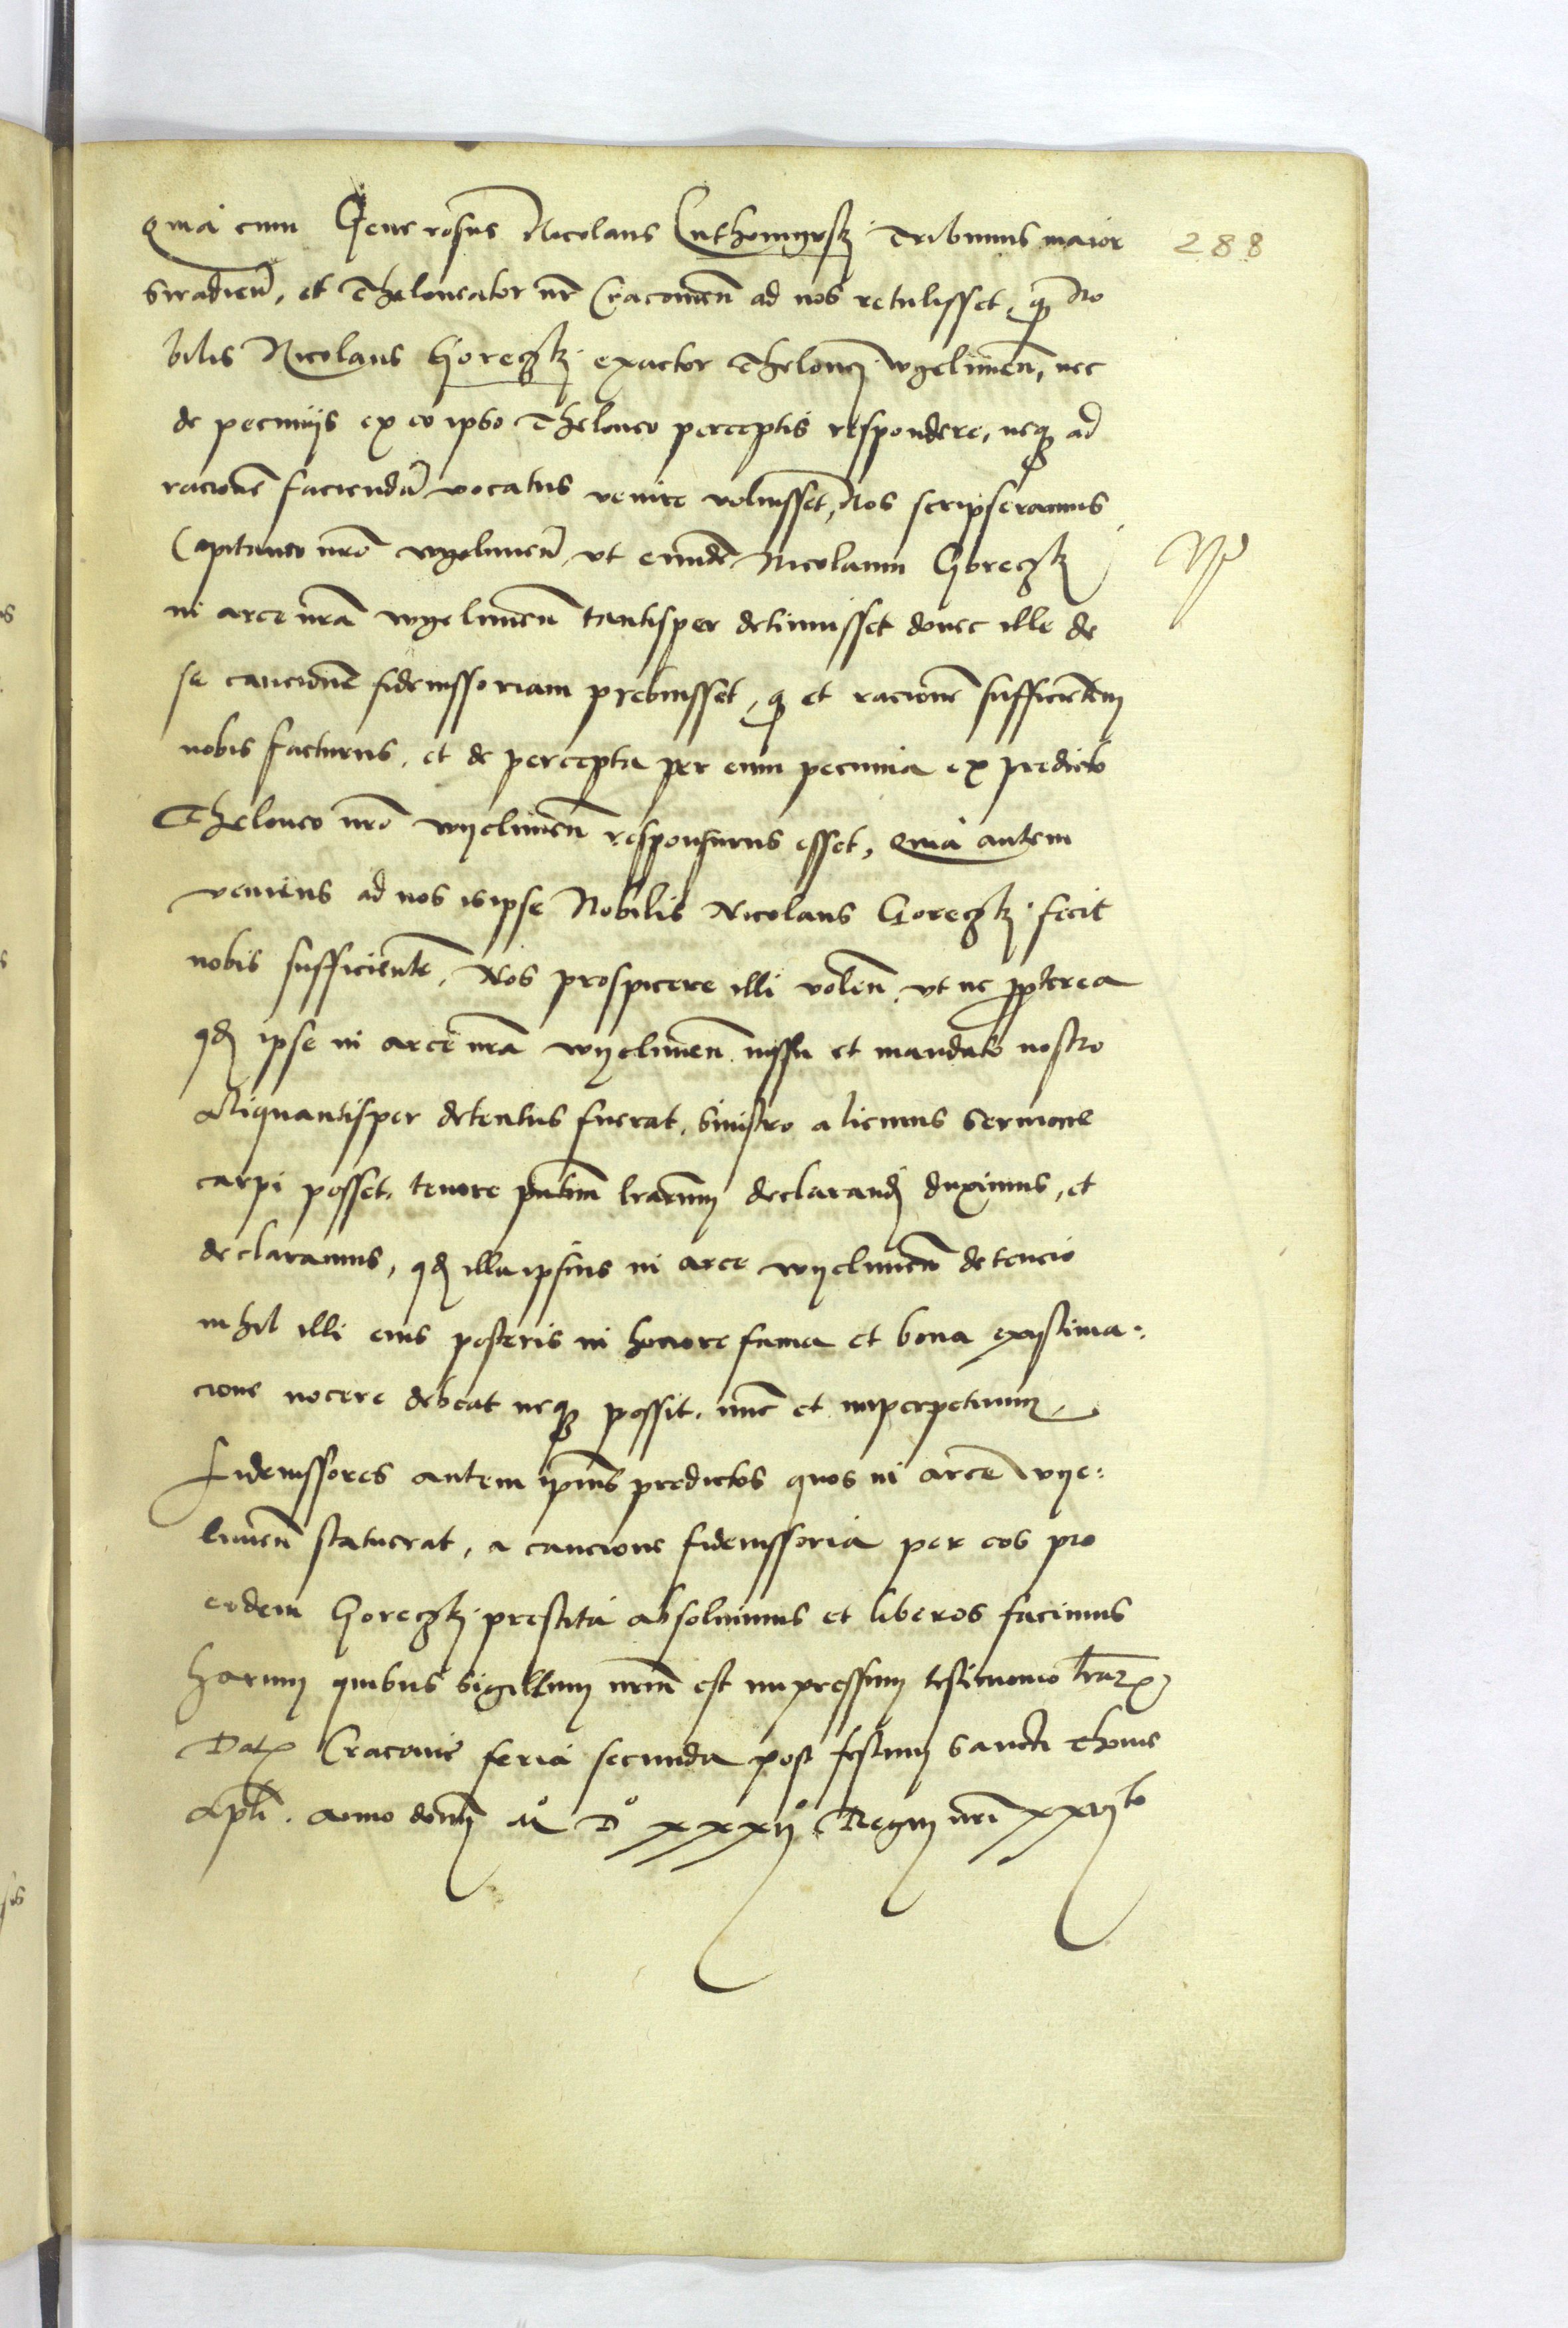 Quia cum Generosus Nicolaus Cuthomyrsk Tribunus maior 288
Siradien̄, et Theloneator nr̄ Cracovien̄ ad nos retulisset, ꝙ No
bilis Nicolaus Goreczkj exactor Thelonej vyelunen̄, nec
de pecunijs ex eo ipso Theloneo perceptis respondere, neqꝫ ad
racionē faciendā vocatus venire voluisset, Nos scripseramus
Capitaneo nr̄o vyelunen̄, vt eundē Nicolaum Goreczkj
in arce nr̄a vyelunen̄ tantisper detinuisset donec ille de
se caucionē fideiussoriam prebuisset, ꝙ et racionē sufficientem
nobis facturus, et de percepta per eum pecunia ex predicto
Theloneo nr̄o vyelunen̄ responsurus esset, Quia autem
veniens ad nos is ipse Nobilis Nicolaus Goreczkj fecit
nobis sufficientē, Nos prospicere illi volen̄, vt ne ꝓpterea
qđ ipse in arce nr̄a vyelunen̄ iussu et mandato nostro
aliquantisper detentus fuerat, sinistro alicuius sermone
carpi posset, tenore pn̄tium lrārum declarand̄ duximus, et
declaramus, qđ illa ipsius in arce vyelunen̄ detencio
nihil illi eius posteris in honore fama et bona existima:
cione nocere debeat neqꝫ possit, nunc et inperpetuum,
Fideiussores autem ip̄ius predictos quos in arce vye:
lunen̄ statuerat, a caucione fideiussoria per eos pro
eodem Goreczkj prestita absoluimus et liberos facimus
harum quibus sigillum nrūm est impressum testimonio lrāꝝ
Datꝭ Cracovie feria secunda post festum sancti Thome
apl̄i. anno domī Mͦ Dͦ xxxijͦ Regnj nrī xxvjto